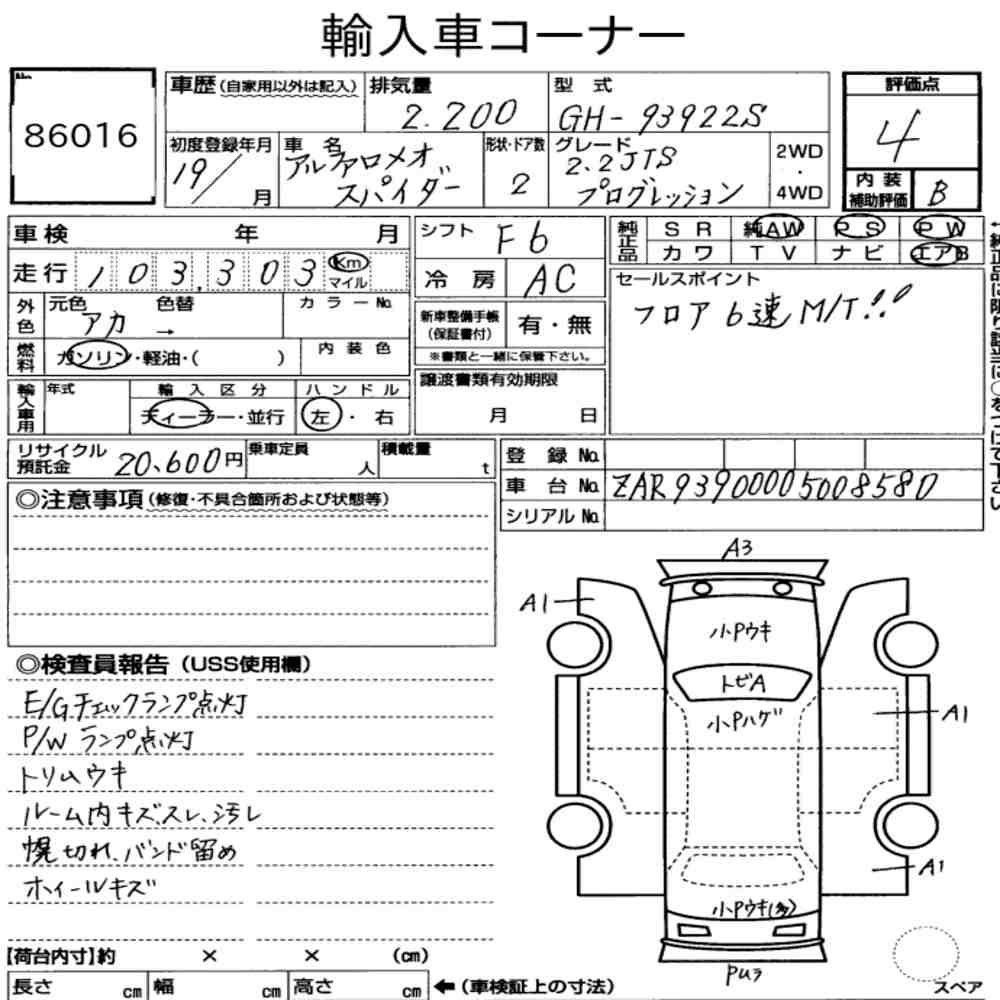 輸入車コーナー
No.
86016
車歴(自家用以外は記入) 排気量 2.200 型式 GH-93922S
初度登録年月 19/ 月 車名 アルファロメオ スパイダー 形状・ドア数 2 グレード 2.2JTS プログレッション 2WD・4WD
評価点 4
内装補助評価 B
車検 年 月
走行 103,303 Km マイル
外色 元色 アカ 色替 → カラーNo.
燃料 ガソリン・軽油・( ) 内装色
輸入車用 年式 輸入区分 ディーラー・並行 ハンドル 左・右
シフト F6
冷房 AC
新車整備手帳(保証書付) 有・無
※書類と一緒に保管下さい。
譲渡書類有効期限
月 日
純正品 SR 純AW PS PW
カワ TV ナビ エアB
セールスポイント
フロア6速M/T!!
リサイクル預託金 20,600円 乗車定員 人 積載量 t
登録No.
車台No. ZAR93900005008580
シリアルNo.
◎注意事項(修復・不具合箇所および状態等)
◎検査員報告(USS使用欄)
E/Gチェックランプ点灯
P/Wランプ点灯
トリムウキ
ルーム内キズスレ、汚レ
幌切れ、バンド留め
ホイールキズ
【荷台内寸】約 × × (cm)
長さ cm 幅 cm 高さ cm ←(車検証上の寸法)
A3
A1
小Pウキ
トビA
小Pハゲ
A1
A1
小Pウキ(多)
PU3
スペア